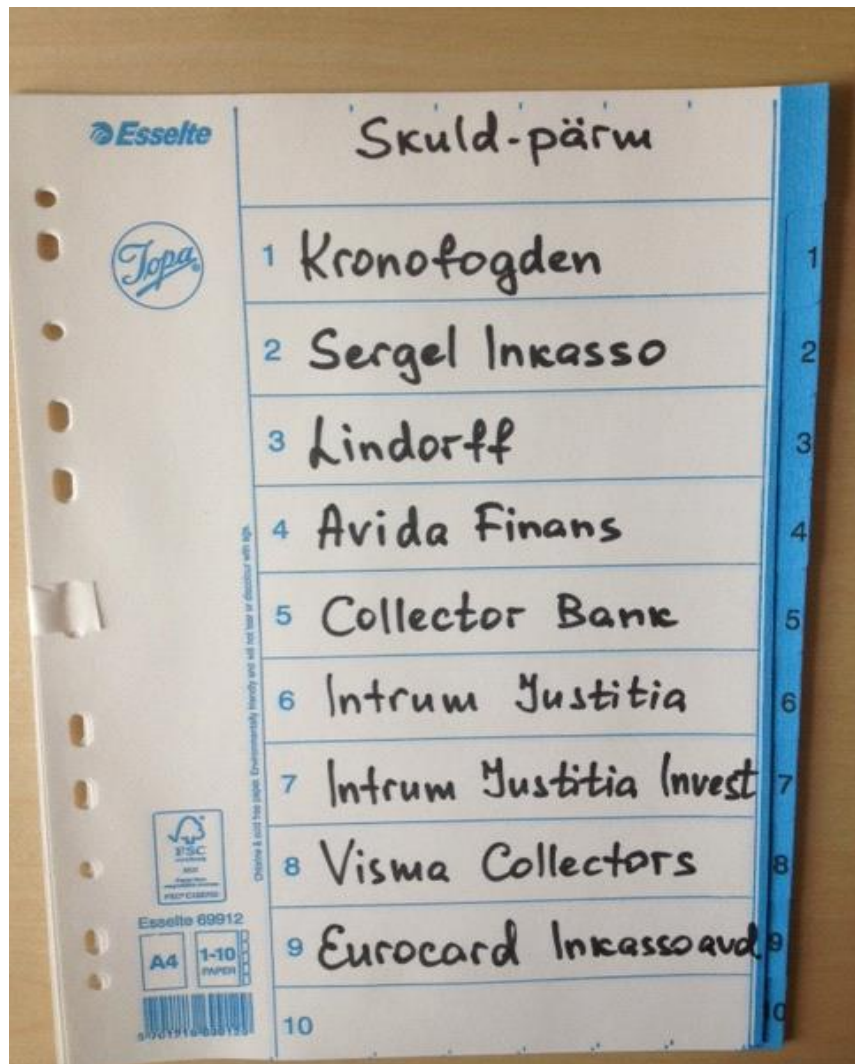 Esselte
Skuld-pärm
Topa
1 Kronofogden 1
2 Sergel Inkasso 2
3 Lindorff 3
4 Avida Finans 4
5 Collector Bank 5
6 Intrum Justitia 6
7 Intrum Justitia Invest 7
8 Visma Collectors 8
9 Eurocard Inkassoavd 9
10 10
Chlorine & acid free paper. Environmentally friendly and will not tear or discolour with age.
FSC
Esselte 69912
A4
1-10
PAPER